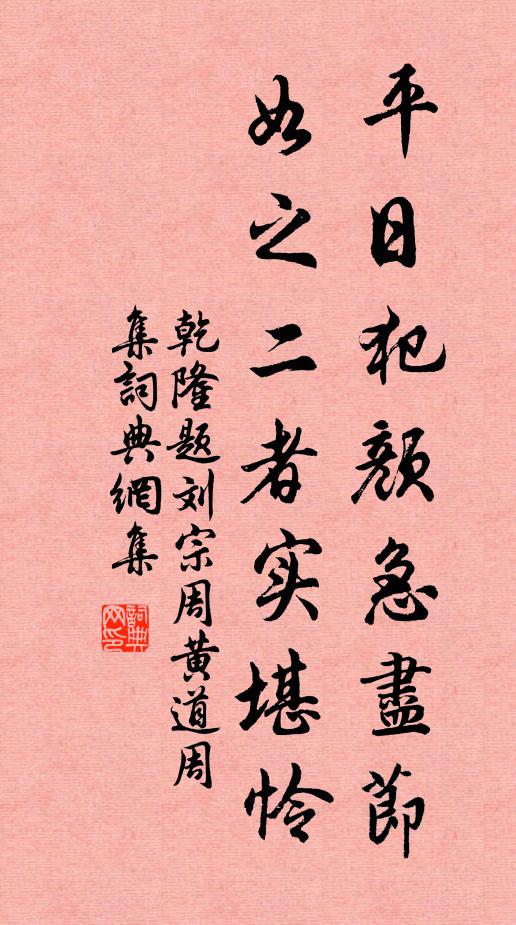 平日犯顔急盡節
如之二者实堪怜
乾隆题刘宗周黄道周
集詞典網集
詞典网印